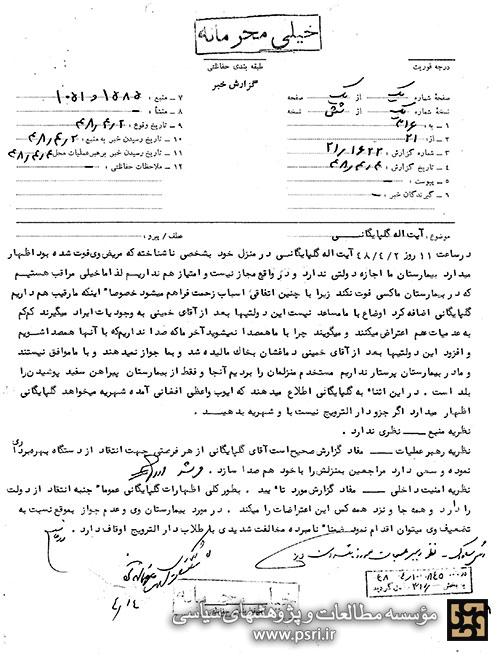 خیلی محرمانه
درجه فوریت
طبقه بندی حفاظتی
گزارش خبر
صفحه شماره یک از یک صفحه
نسخه شماره یک از شش نسخه
۱ ـ به : ۳۱۶
۲ ـ از : ۲۱
۳ ـ شماره گزارش : ۲۱/۱۶۲۲
۴ ـ تاریخ گزارش : ۴۸/۴/۴
۵ ـ پیوست :
۶ ـ گیرندگان خبر :
۷ ـ منبع :
۸ ـ منشأ :
۹ ـ تاریخ وقوع : ۴۸/۴/۲
۱۰ ـ تاریخ رسیدن خبر به منبع : ۴۸/۴/۲
۱۱ ـ تاریخ رسیدن خبر برهبر عملیات محل : ۴۸/۴/۴
۱۲ ـ ملاحظات حفاظتی :
موضوع : آیت اله گلپایگانی
عطف / پیرو :
در ساعت ۱۱ روز ۴۸/۴/۲ آیت اله گلپایگانی در منزل خود بشخصی ناشناخته که مریض وی فوت شده بود اظهار
میدارد بیمارستان ما اجازه دولتی ندارد و در واقع مجاز نیست و امتیاز هم نداریم لذا ما خیلی مراقب هستیم
که در بیمارستان ما کسی فوت نکند زیرا با چنین اتفاقی اسباب زحمت فراهم میشود خصوصا" اینکه ما رقیب هم داریم
گلپایگانی اضافه کرد اوضاع با ما مساعد نیست این دولتیها بعد از آقای خمینی به وجودیات ایراد میگیرند کم کم
به عدمیات هم اعتراض میکنند و میگویند چرا با ما همصدا نمیشوید آخر ما که صدا نداریم که با آنها همصدا شویم
و افزود این دولتیها بعد از آقای خمینی دماغشان بخاک مالیده شد و بما جواز نمیدهند و با ما موافق نیستند
و ما در بیمارستان پرستار نداریم مستخدم منزلمان را بردیم آنجا و فقط از بیمارستان پیراهن سفید پوشیدن را
بلد است . در این اثناء به گلپایگانی اطلاع میدهند که ایوب واعظی افغانی آمده شهریه میخواهد گلپایگانی
اظهار میدارد اگر جزو دارالترویج نیست با و شهریه بدهید .
نظریه منبع ـ نظری ندارد .
نظریه رهبر عملیات ـ مفاد گزارش صحیح است آقای گلپایگانی از هر فرصتی جهت انتقاد از دستگاه بهره برداری
نموده و سعی دارد مراجعین بمنزلش را با خود هم صدا سازد .
نظریه امنیت داخلی ـ مفاد گزارش مورد تائید . بطور کلی اظهارات گلپایگانی عموما" جنبه انتقاد از دولت
را دارد و همه جا و نزد همه کس این اعتراضات را میکند . در مورد بیمارستان وی و عدم جواز بموقع نسبت به
تضعیف وی میتوان اقدام نمود ضمنا" نامبرده مخالفت شدیدی با طلاب دارالترویج اوقاف دارد .
۴/۱۴
خیلی محرمانه
مؤسسه مطالعات و پژوهشهای سیاسی
www.psri.ir